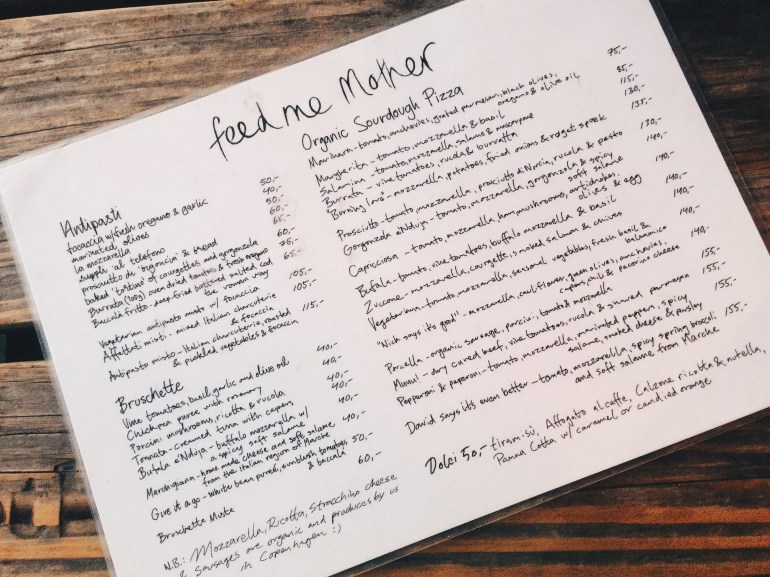 feed me Mother
Antipasti
focaccia w/fresh oregano & garlic 50,-
marinated olives 40,-
la mozzarella 50,-
suppli 'al telefono' 60,-
prosciutto de 'ognoncini' & bread 65,-
baked 'tortino' of courgettes and gorgonzola 60,-
Burrata (100g) oven dried tomatos & fresh oregano 75,-
Baccalá fritto - deep-fried battered salted cod 65,-
the roman way
Vegetarian antipasto misto w/ focaccia 105,-
Affettati misti - mixed Italian charcuterie 105,-
& focaccia
Antipasto misto - Italian charcuterie, roasted 115,-
& pickled vegetables & focaccia
Bruschette
Vine tomatoes, basil, garlic and olive oil 40,-
Chickpea puree with rosemary 40,-
Porcini mushrooms, ricotta & rucola 40,-
Tonnata - creamed tuna with capers 40,-
Bufala e'Nduja - buffalo mozzarella w/ 40,-
a spicy soft salame
Marchigiana - home made cheese and soft salame 40,-
from the Italian region of Marche
Give it a go - white bean pureed, sunblush tomatoes 50,-
& baccalá
Bruschette Miste 60,-
N.B.: Mozzarella, Ricotta, Stracchino cheese
& Sausages are organic and produces by us
in Copenhagen :)
Organic Sourdough Pizza
Marinara - tomato, anchovies, grated parmesan, black olives, 75,-
oregano & olive oil
Margherita - tomato, mozzarella & basil 85,-
Salamina - tomato, mozzarella, salame & mascarpone 115,-
Burrata - vine tomatoes, rucola & burratta 130,-
Burning love - mozzarella, potatoes, fried onions & røget spæk 135,-
Prosciutto - tomato, mozzarella, prosciutto di Norcia, rucola & pesto 130,-
Gorgonzola e'Nduja - tomato, mozzarella, gorgonzola & spicy 140,-
soft salame
Capricciosa - tomato, mozzarella, ham, mushrooms, artichokes, 140,-
olives & egg
Bufala - tomato, vine tomatoes, buffalo mozzarella & basil 140,-
Zuccone - mozzarella, courgette, smoked salmon & chives 140,-
Vegetariana - tomato, mozzarella, seasonal vegetables, fresh basil & 140,-
balsamico
"Nick says its good" - mozzarella, cauliflower, green olives, anchovies, 140,-
capers, chili & pecorino cheese
Porcella - organic sausage, porcini, tomato & mozzarella 155,-
Muuu! - dry cured beef, vine tomatoes, rucola & shaved parmesan 155,-
Pepperoni & peperoni - tomato, mozzarella, marinated peppers, spicy 155,-
salame, smoked cheese & parsley
David says its even better - tomato, mozzarella, spicy spring broccoli 155,-
and soft salame from Marche
Dolci 50,- tiramisù, Affogato al caffe, Calzone ricotta & nutella,
Panna Cotta w/ caramel or candied orange